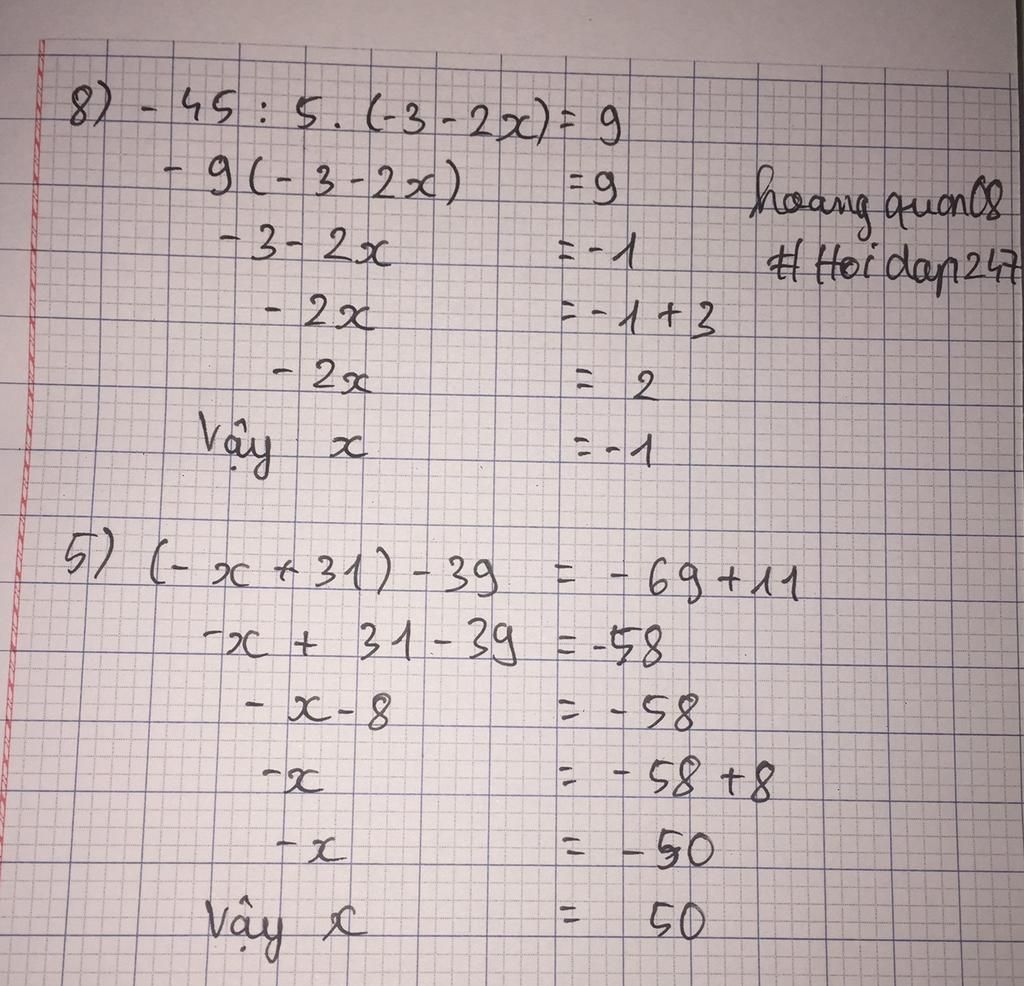 8) - 45 : 5 . (-3 - 2x) = 9
- 9 (- 3 - 2x) = 9
- 3 - 2x = - 1
- 2x = - 1 + 3
- 2x = 2
Vậy x = - 1
hoangquan08
#Hoidap247
5) (- x + 31) - 39 = - 69 + 11
-x + 31 - 39 = -58
- x - 8 = - 58
-x = - 58 + 8
- x = - 50
Vậy x = 50